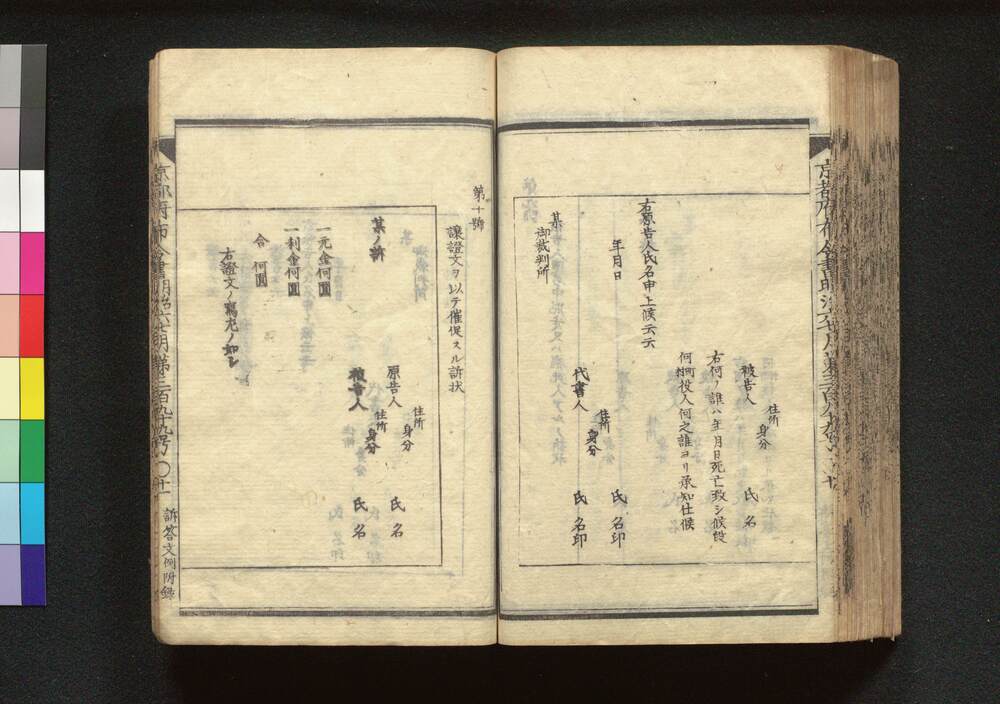 住所
被告人 身分 氏名
右何ノ誰ハ年月日死亡致シ候段
何町村役人何之誰ヨリ承知仕候
右願告人氏名申上候云云
年月日 氏名印
住所
代書人 身分 氏名印
某
御裁判所
第十號
讓證文ヲ以テ催促スル訴状
住所
原告人 身分 氏名
住所
被告人 身分 氏名
某ノ訴
一元金何圓
一利金何圓
合何圓
右證文ノ寫左ノ如シ
訴答文例附録